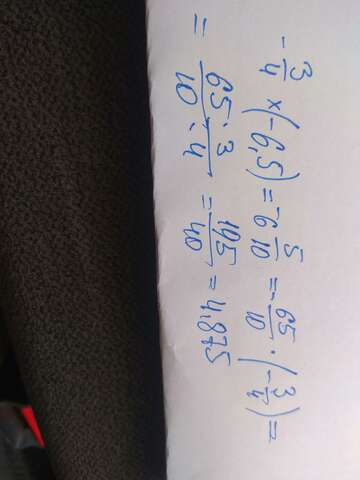 -3/4 × (-6,5) = -6 5/10 = -65/10 · (-3/4) =
= 65 · 3/10 · 4 = 195/40 = 4,875